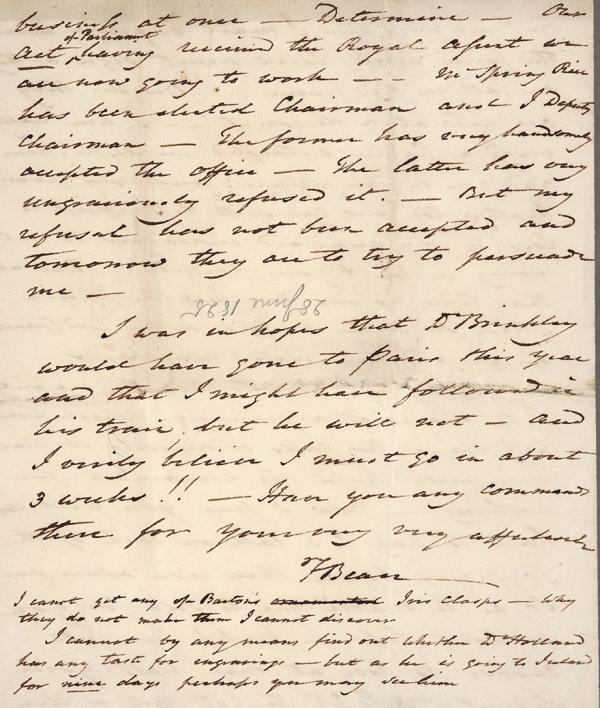 business at once — Determine — Our
of Parliament
Act, having received the Royal assent we
are now going to work — — Mr Spring Rice
has been elected Chairman and I Deputy
Chairman — The former has very handsomely
accepted the office — The latter has very
ungraciously refused it. — But my
refusal has not been accepted and
tomorrow they are to try to persuade
me —
28 June 182
I was in hopes that Dr Brinkley
would have gone to Paris this year
and that I might have followed in
his train, but he will not — and
I verily believe I must go in about
3 weeks!! — Have you any commands
there for your very very affectionate
F Beau
I cannot get any of Barton's ornamented Iris clasps — why
they do not make them I cannot discover
I cannot by any means find out whether Dr Holland
has any taste for engravings — but as he is going to Ireland
for nine days perhaps you may see him